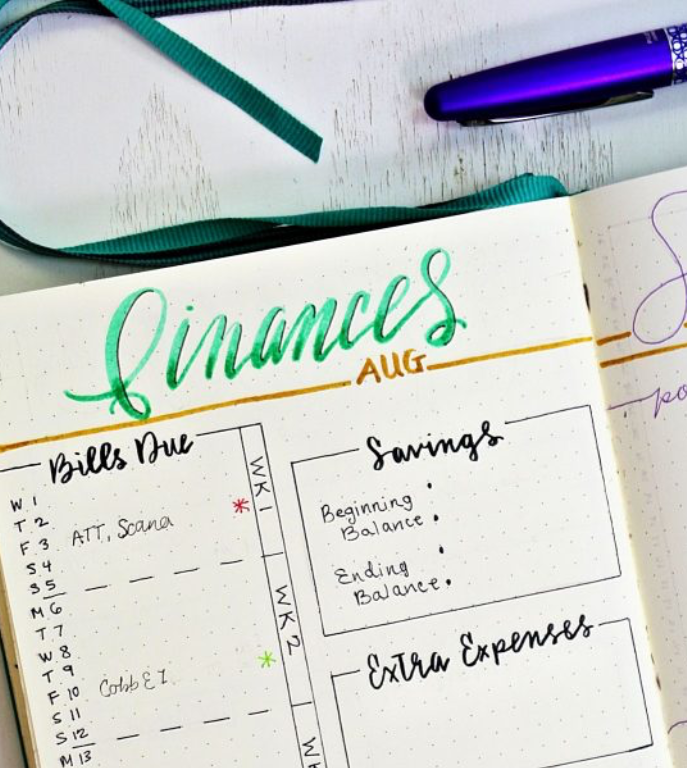 Finances
AUG
Bills Due
W 1
T 2
F 3 ATT, Scana
S 4
S 5
M 6
T 7
W 8
T 9
F 10 Cobb E
S 11
S 12
M 13
WK 1
WK 2
Savings
Beginning
Balance:
Ending
Balance:
Extra Expenses